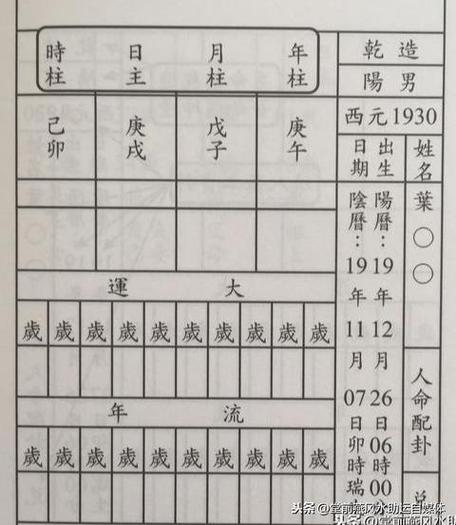 乾造
陽男
西元1930
姓名
葉○○
人命配卦
兌
出生
日期
陽曆：19年12月26日06時00
陰曆：19年11月07日卯時瑞
年柱
月柱
日主
時柱
庚午
戊子
庚戌
己卯
大運
歲 歲 歲 歲 歲 歲 歲 歲 歲 歲
流年
歲 歲 歲 歲 歲 歲 歲 歲 歲 歲
头条@堂前燕风水助运自媒体